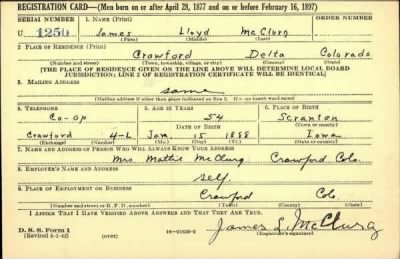 REGISTRATION CARD—(Men born on or after April 28, 1877 and on or before February 16, 1897)
SERIAL NUMBER 1. NAME (Print) ORDER NUMBER
U 1250 James Lloyd McClurg
(First) (Middle) (Last)
2. PLACE OF RESIDENCE (Print)
Crawford Delta Colorado
(Number and street) (Town, township, village, or city) (County) (State)
[THE PLACE OF RESIDENCE GIVEN ON THE LINE ABOVE WILL DETERMINE LOCAL BOARD
JURISDICTION; LINE 2 OF REGISTRATION CERTIFICATE WILL BE IDENTICAL]
3. MAILING ADDRESS
same
[Mailing address if other than place indicated on line 2. If same insert word same]
4. TELEPHONE 5. AGE IN YEARS 6. PLACE OF BIRTH
Co-op 54 Scranton
DATE OF BIRTH (Town or county)
Crawford 4-L Jan. 15 1888 Iowa
(Exchange) (Number) (Mo.) (Day) (Yr.) (State or country)
7. NAME AND ADDRESS OF PERSON WHO WILL ALWAYS KNOW YOUR ADDRESS
Mrs. Mattie McClurg Crawford Colo.
8. EMPLOYER'S NAME AND ADDRESS
self
9. PLACE OF EMPLOYMENT OR BUSINESS
Crawford Col.
(Number and street or R. F. D. number) (Town) (County) (State)
I AFFIRM THAT I HAVE VERIFIED ABOVE ANSWERS AND THAT THEY ARE TRUE.
D. S. S. Form 1
(Revised 4-1-42) (over) 16-21630-2 James L. McClurg
(Registrant's signature)